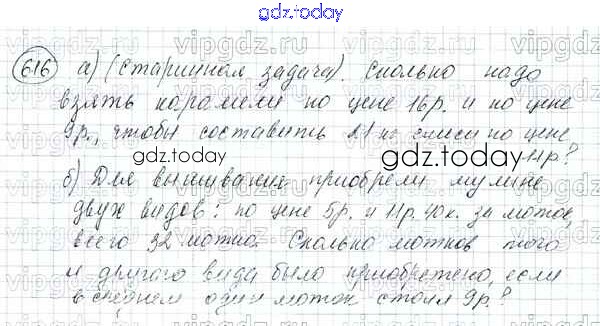 gdz.today
616 а) (Старинная задача). Сколько надо
взять карамели по цене 16р. и по цене
9р., чтобы составить 21 кг смеси по цене
11р?
gdz.today
gdz.today
б) Для вышивания приобрели мулине
двух видов: по цене 5р. и 11р. 40к. за моток,
всего 32 мотка. Сколько мотков того
и другого вида было приобретено, если
в среднем один моток стоил 9р.?